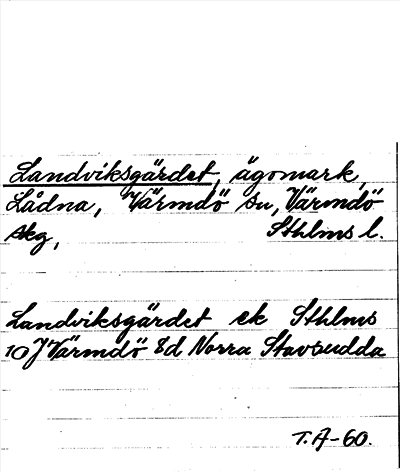 Landviksgärdet, ägomark,
Lådna, Värmdö sn, Värmdö
skg, Sthlms l.
Landviksgärdet ek Sthlms
10J Värmdö 8d Norra Stavsudda
T.A-60.